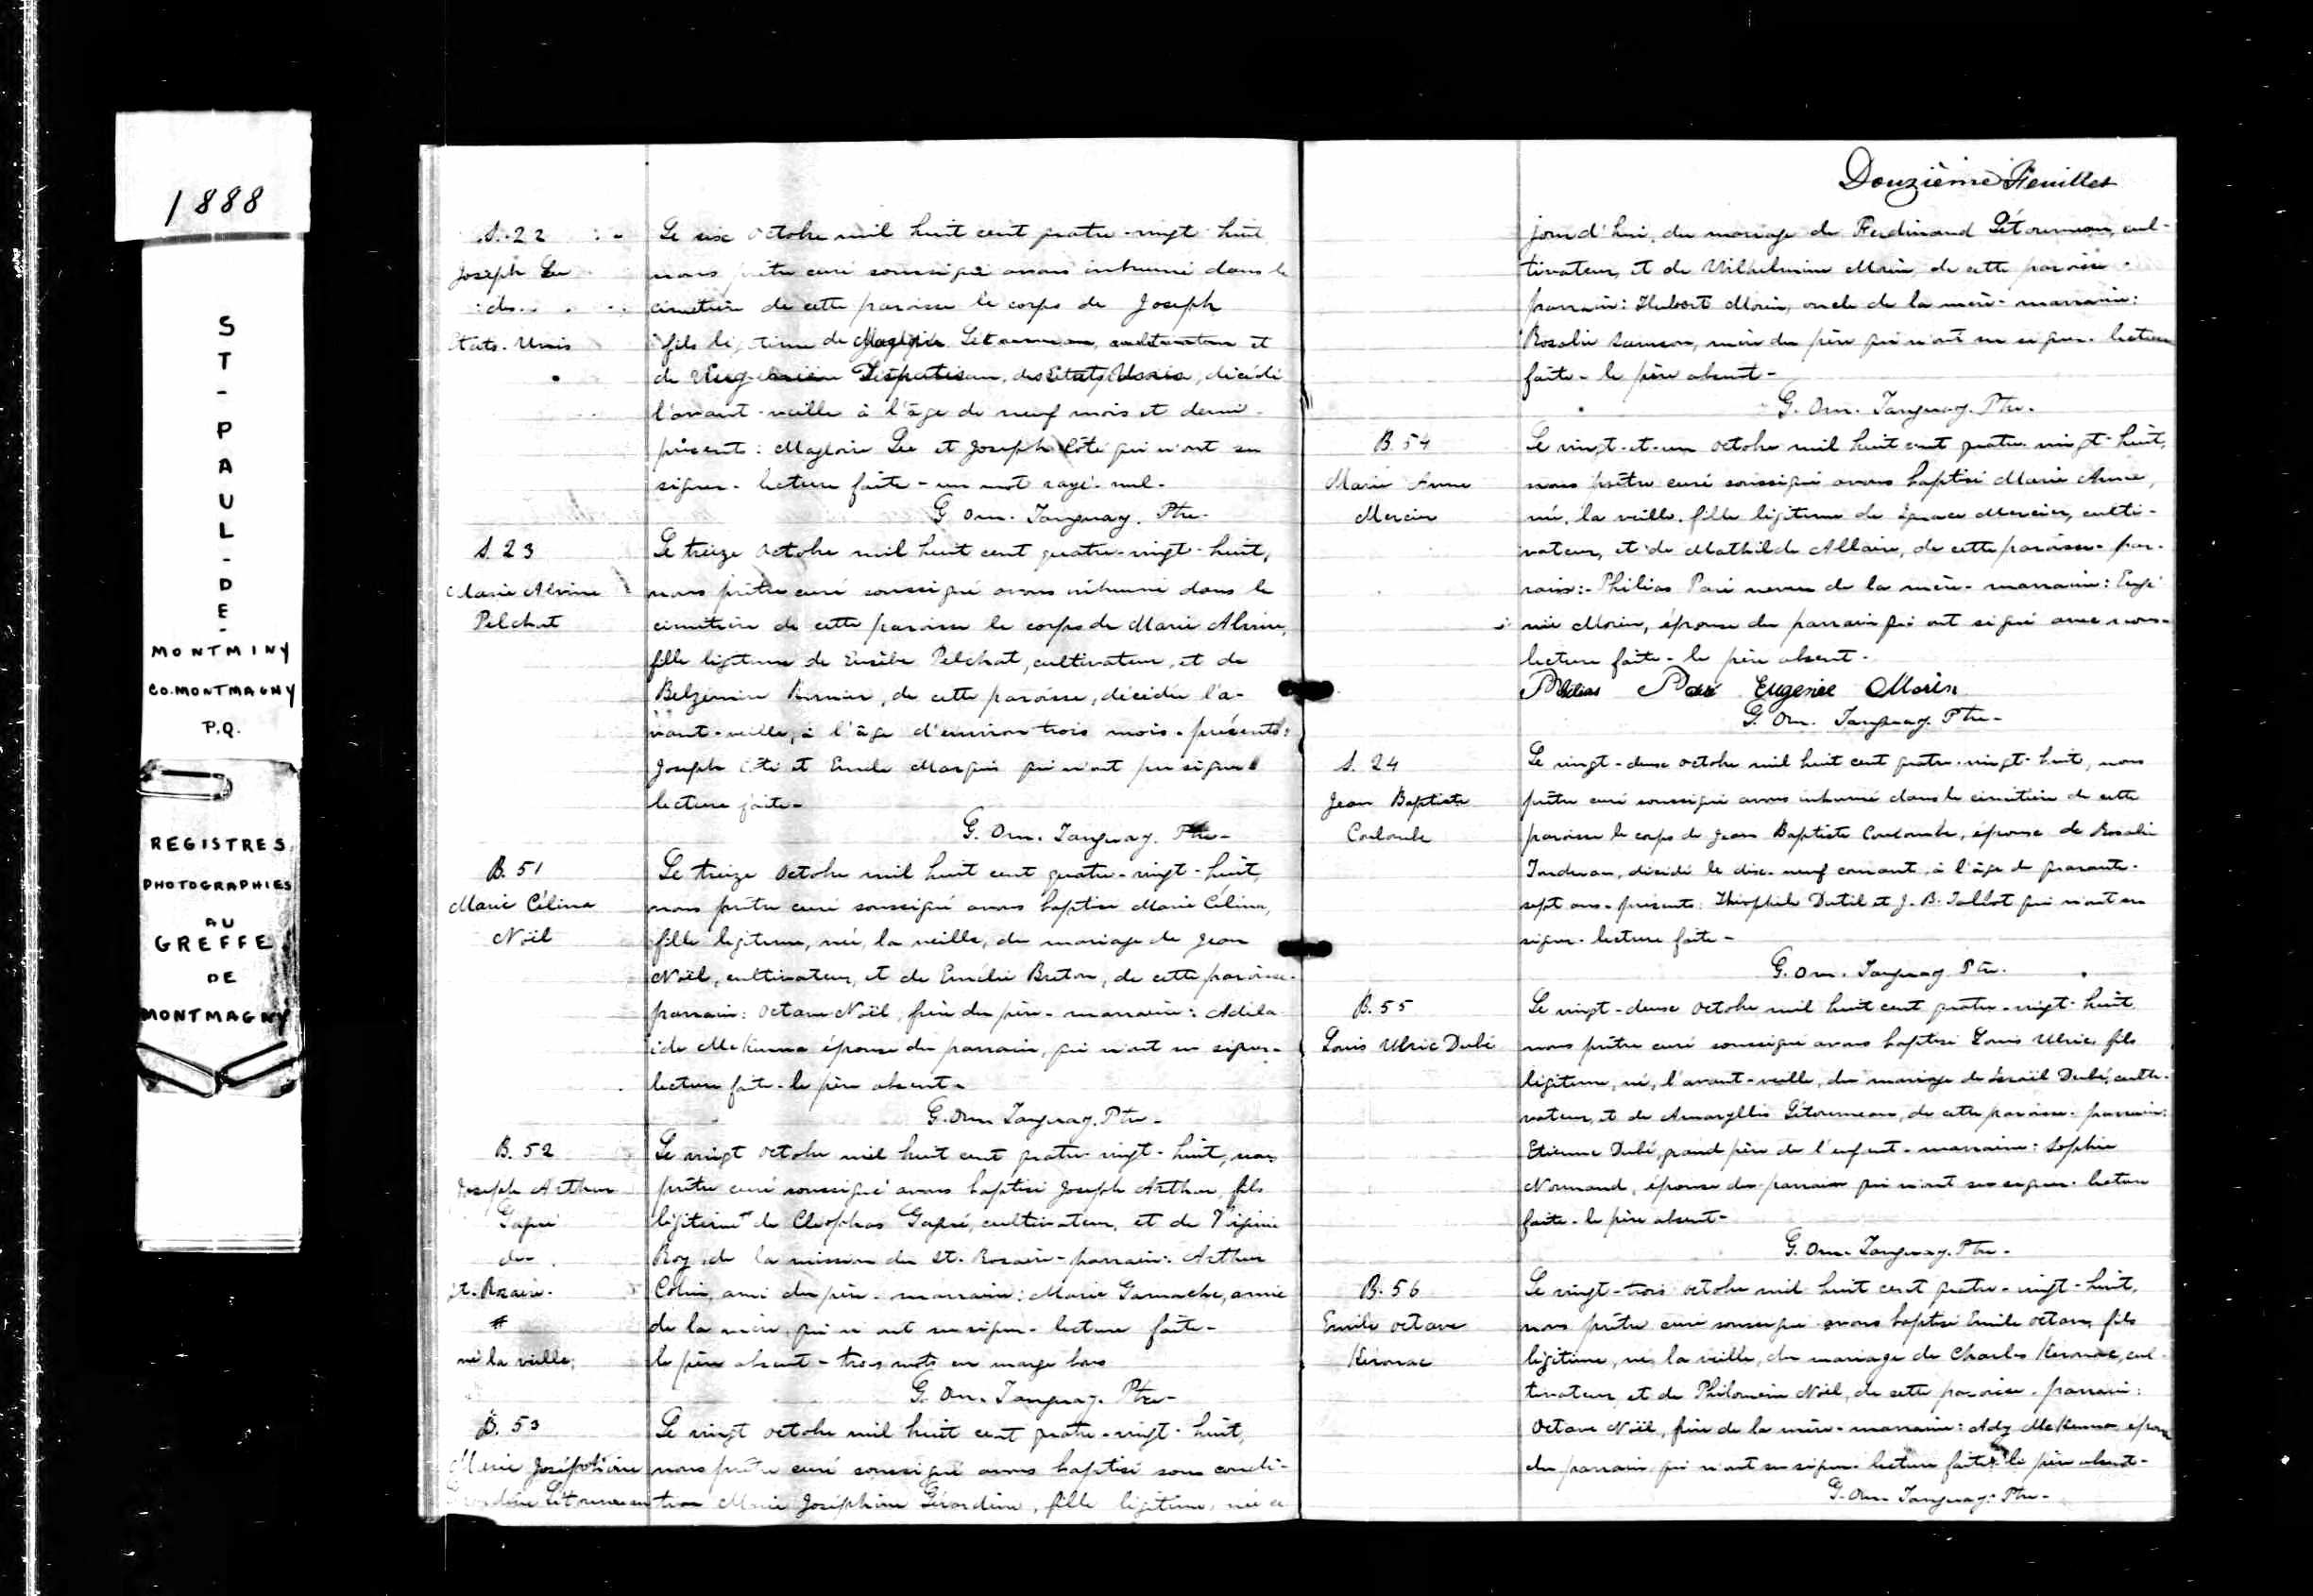 1888
ST-PAUL-DE-
MONTMINY
CO. MONTMAGNY
P.Q.
REGISTRES
PHOTOGRAPHIES
AU
GREFFE
DE
MONTMAGNY
S. 22
Joseph Lee
des
Etats-Unis
Le six octobre mil huit cent quatre-vingt-huit
nous prêtre curé soussigné avons inhumé dans le
cimetière de cette paroisse le corps de Joseph
fils légitime de Magloire Létourneau, cultivateur et
de des Etats Unis, décédé
l'avant-veille à l'âge de neuf mois et demi-
présents: Magloire Lee et Joseph Côté qui n'ont su
signer. lecture faite - un mot rayé nul.
G. Om. Tanguay. Ptre-
S. 23
Marie Alvine
Pelchat
Le treize octobre mil huit cent quatre-vingt-huit,
nous prêtre curé soussigné avons inhumé dans le
cimetière de cette paroisse le corps de Marie Alvine,
fille légitime de Eusèbe Pelchat, cultivateur, et de
Belzemire, de cette paroisse, décédée l'a-
vant-veille, à l'âge d'environ trois mois. présents:
Joseph Côté et Emile Marquis qui n'ont pu signer
lecture faite-
G. Om. Tanguay. Ptre-
B. 51
Marie Célina
Noël
Le treize octobre mil huit cent quatre-vingt-huit,
nous prêtre curé soussigné avons baptisé Marie Célina,
fille légitime, née, la veille, du mariage de Jean
Noël, cultivateur, et de Emélie Breton, de cette paroisse.
parrain: Octave Noël, frère du père - marraine: Adéla
ide McKenna épouse du parrain, qui n'ont su signer-
lecture faite. le père absent-
G. Om. Tanguay. Ptre-
B. 52
Joseph Arthur
Gagné
de
St. Rosaire.
#
né la veille,
Le vingt octobre mil huit cent quatre-vingt-huit, nous
prêtre curé soussigné avons baptisé Joseph Arthur, fils
légitime # de Cléophas Gagné, cultivateur, et de Virginie
Roy, de la mission du St. Rosaire - parrain: Arthur
Colin, ami du père - marraine: Marie Gamache, amie
de la mère, qui n'ont su signer - lecture faite-
le père absent - trois mots en marge bons
G. Om. Tanguay. Ptre-
B. 53
Marie Joséphine
Gérardine Létourneau
Le vingt octobre mil huit cent quatre-vingt-huit,
nous prêtre curé soussigné avons baptisé sous condi-
tion Marie Joséphine Gérardine, fille légitime, née ce
Douzième Feuillet
jourd'hui, du mariage de Ferdinand Létourneau, cul-
tivateur, et de Wilhelmine Morin de cette paroisse.
parrain: Hubert Morin, oncle de la mère - marraine:
Rosalie Samson, mère du père qui n'ont su signer. lecture
faite - le père absent-
G. Om. Tanguay. Ptre.
B. 54
Marie Anne
Mercier
Le vingt-et-un octobre mil huit cent quatre-vingt-huit,
nous prêtre curé soussigné avons baptisé Marie Anne,
née, la veille, fille légitime de Ignace Mercier, culti-
vateur, et de Mathilde Allaire, de cette paroisse - par-
rain: - Philias Paré neveu de la mère - marraine: Eugé
nie Morin, épouse du parrain qui ont signé avec nous-
lecture faite - le père absent.
Philias Paré Eugenie Morin
G. Om. Tanguay. Ptre-
S. 24
Jean Baptiste
Coulombe
Le vingt-deux octobre mil huit cent quatre-vingt-huit, nous
prêtre curé soussigné avons inhumé dans le cimetière de cette
paroisse le corps de Jean Baptiste Coulombe, épouse de Rosalie
décédé le dix-neuf courant, à l'âge de quarante-
sept ans - présents: Théophile Dutil et J. B. Talbot qui n'ont su
signer. lecture faite -
G. Om. Tanguay Ptre.
B. 55
Louis Ulric Dubé
Le vingt-deux octobre mil huit cent quatre-vingt-huit
nous prêtre curé soussigné avons baptisé Louis Ulric, fils
légitime, né, l'avant-veille, du mariage de Israël Dubé, culti-
vateur, et de Amaryllis Létourneau, de cette paroisse. parrain:
Etienne Dubé, grand père de l'enfant - marraine: Sophie
Normand, épouse du parrain qui n'ont su signer. lecture
faite - le père absent-
G. Om. Tanguay. Ptre-
B. 56
Emile Octave
Kerouac
Le vingt-trois octobre mil huit cent quatre-vingt-huit,
nous prêtre curé soussigné avons baptisé Emile Octave, fils
légitime, né, la veille, du mariage de Charles Kerouac, cul-
tivateur, et de Philomène Noël, de cette paroisse. parrain:
Octave Noël, frère de la mère - marraine: Ady McKenna épouse
du parrain qui n'ont su signer. lecture faite le père absent-
G. Om. Tanguay. Ptre-